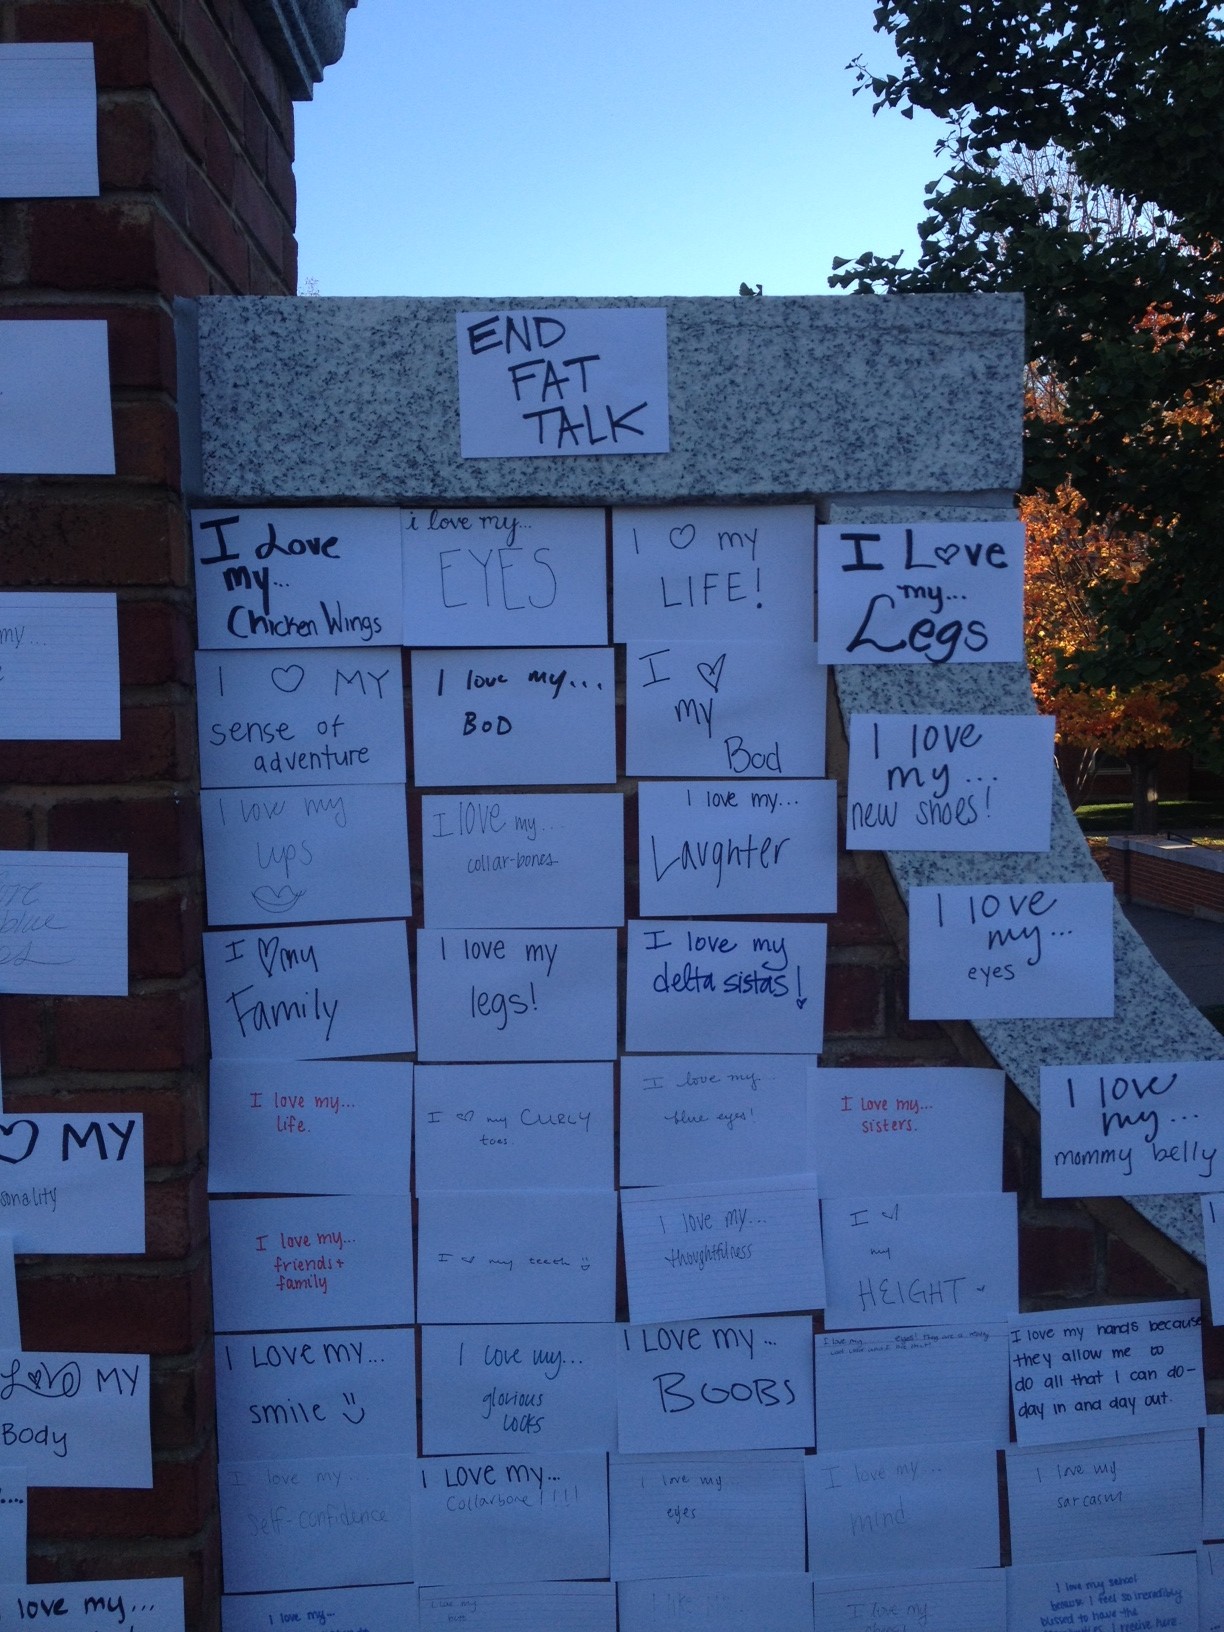 END
FAT
TALK
I Love
my...
Chicken Wings
i love my...
EYES
I ♡ my
LIFE!
I Love
my...
Legs
I ♡ MY
sense of
adventure
I love my...
BOD
I ♡
my
Bod
I love
my...
new shoes!
I love my
lips
I love my...
collar-bones
I love my...
Laughter
I love
my...
eyes
I ♡ my
Family
I love my
legs!
I love my
delta sistas!
I love
my...
mommy belly
I love my...
life.
I ♡ my CURLY
toes.
I love my...
blue eyes!
I love my...
sisters.
I love my...
friends +
family
I ♡ my teeth
I love my...
thoughtfulness
I ♡
my
HEIGHT
I LOVE my...
smile
I love my...
glorious
locks
I LOVE my...
BOOBS
I love my eyes!
I love my hands because
they allow me to
do all that I can do-
day in and day out.
I love my...
self-confidence
I LOVE my...
Collarbone!!!!
I love my
eyes
I love my...
mind
I love my
sarcasm
I love my...
I love my
I love my
I love my school
because I feel so incredibly
blessed to have the
I receive here.
my...
blue
♡ MY
LOVE MY
Body
love my...